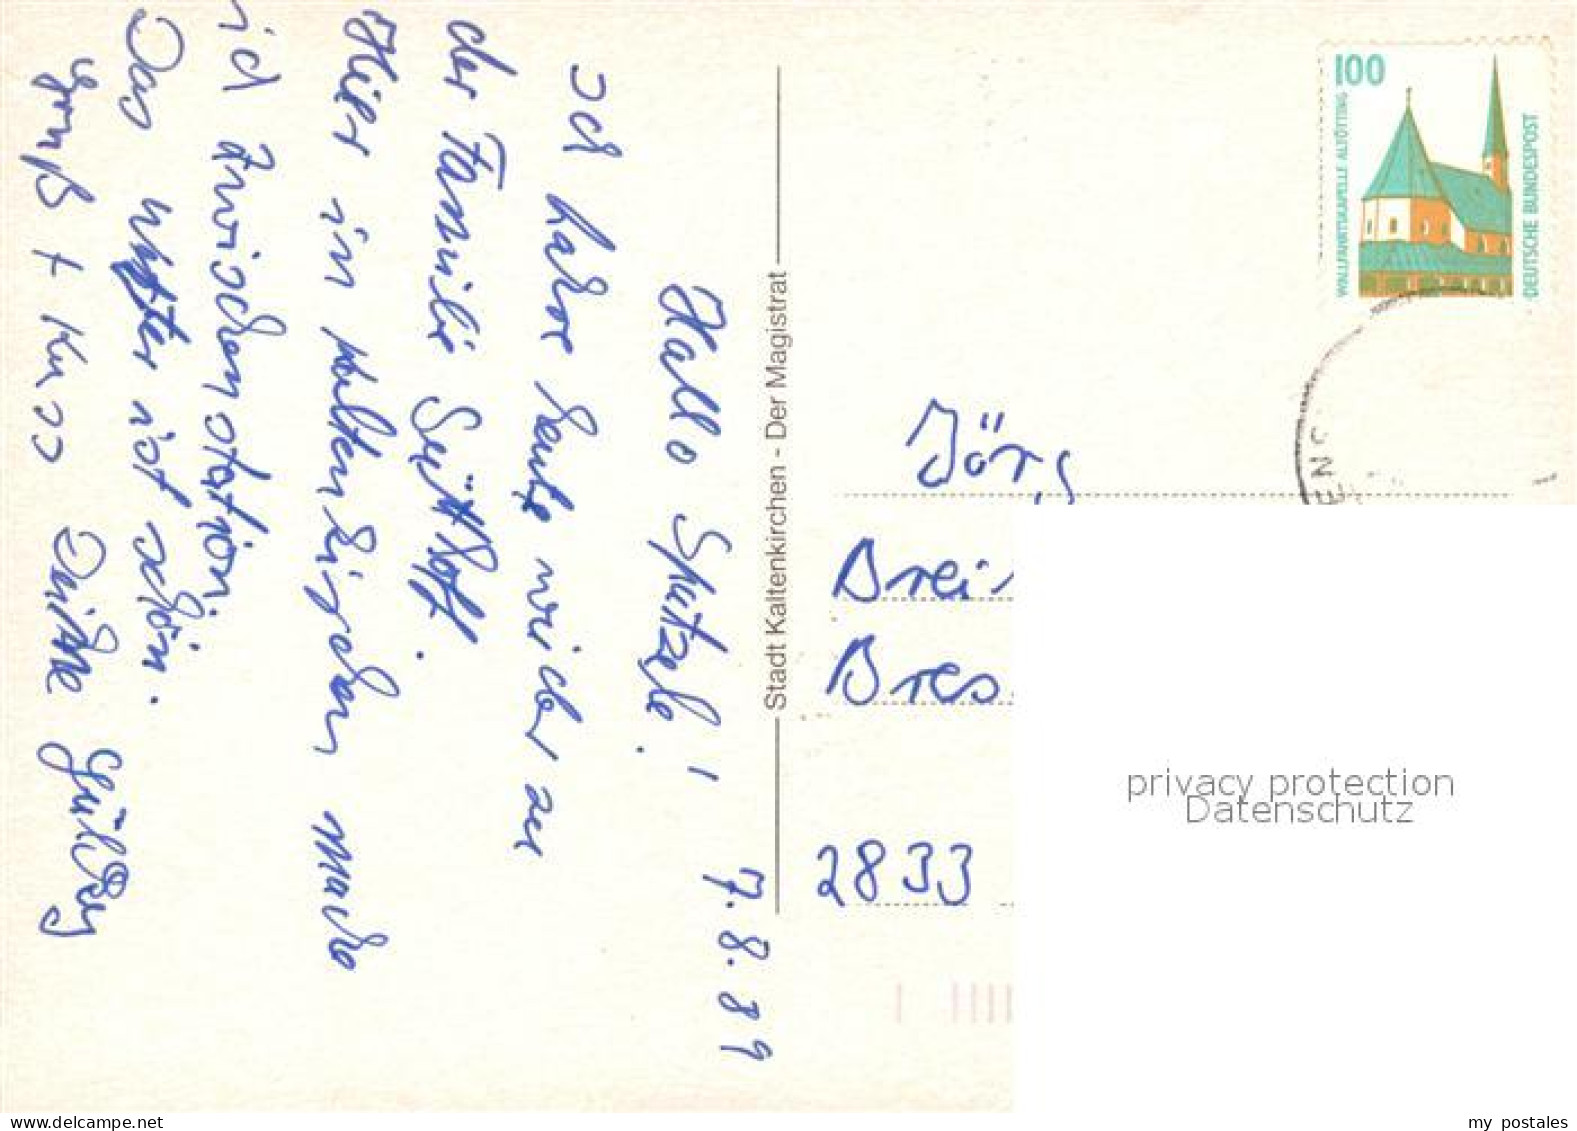 7.8.89
Hallo Spatzele!
Ich fahre heute wieder zu
der Familie
Hier in Kaltenkirchen mache
ich Zwischenstation.
Das Wetter ist schön.
Gruß + Kuss Deine
Stadt Kaltenkirchen - Der Magistrat
100
WALLFAHRTSKAPELLE ALTÖTTING
DEUTSCHE BUNDESPOST
Jörg
Drei
Bres
2833
privacy protection
Datenschutz
my postales